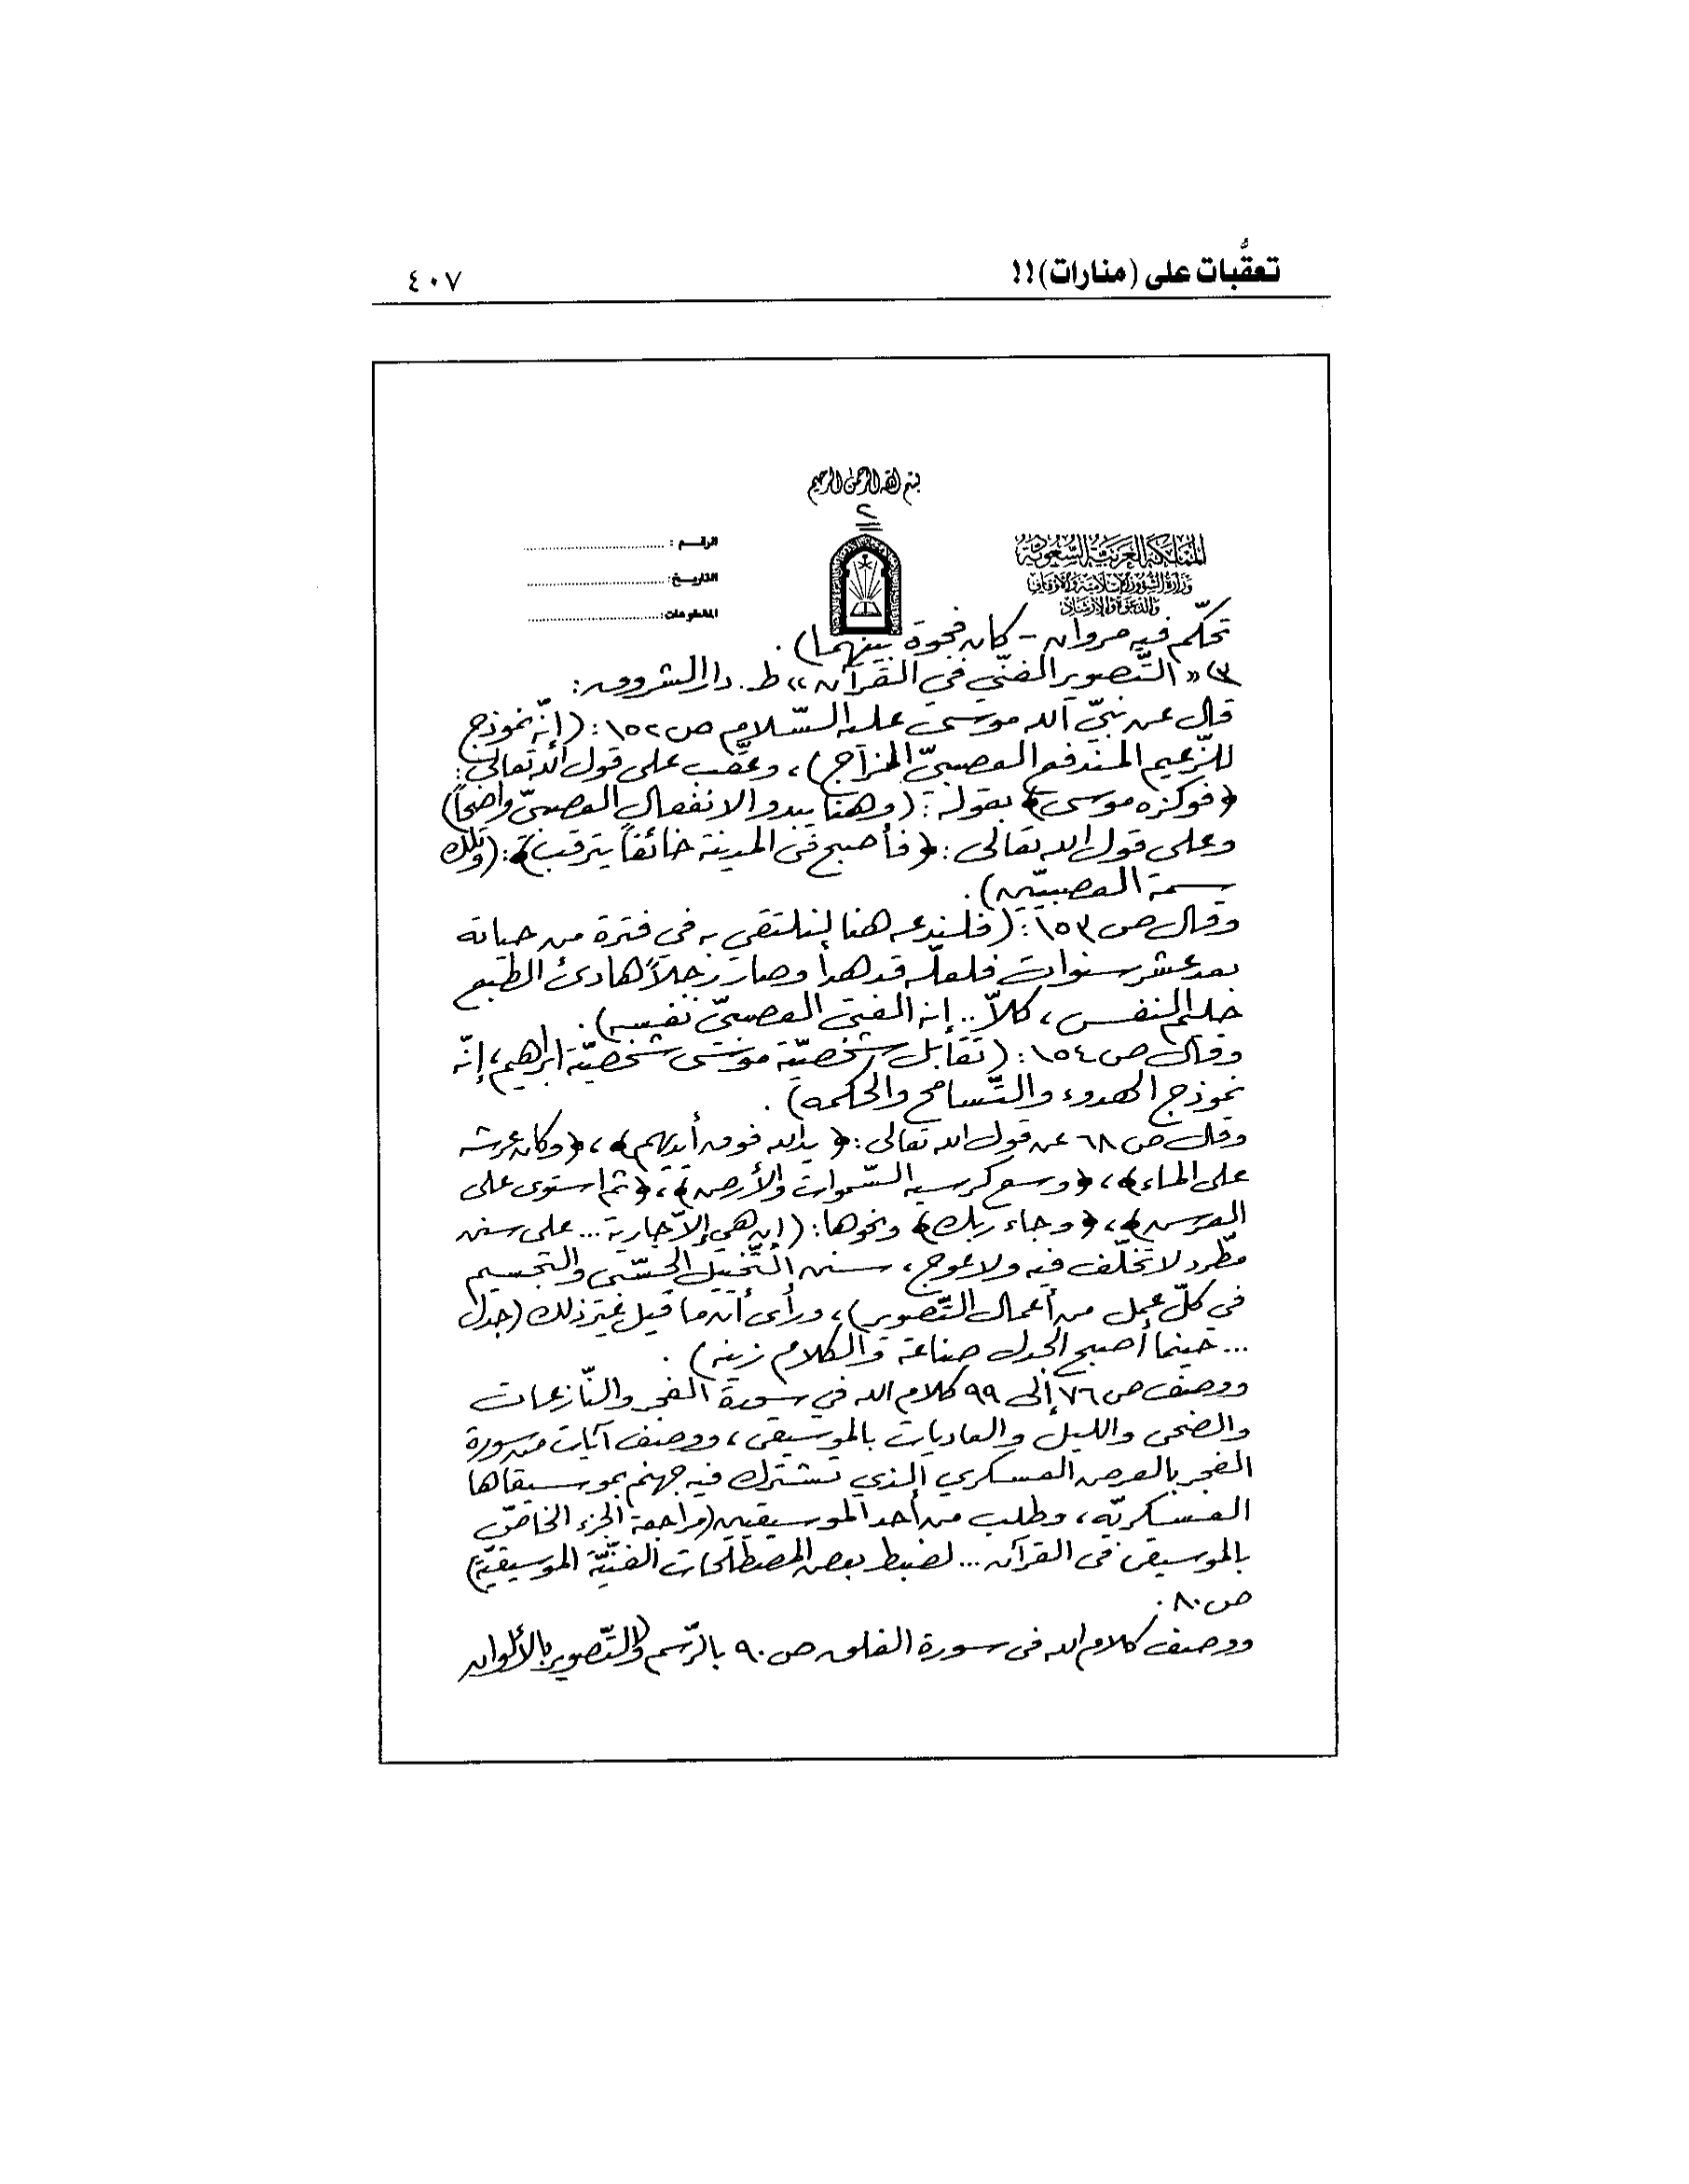 تعقُّبات على (منارات)!!
٤٠٧
بسم الله الرحمن الرحيم
٢
المملكة العربية السعودية
وزارة الشؤون الإسلامية والأوقاف
والدعوة والإرشاد
الرقـــم :
التاريــخ :
المشفوعات :
تحكّم فيه مروان - كان فجوة بينهما) .
٣) «التّصوير الفنّي في القرآن» ط. دار الشروق:
قال عن نبيّ الله موسى عليه السّلام ص ١٥٢: (إنّه نموذج
للزّعيم المندفع العصبيّ المزاج)، وعقّب على قول الله تعالى:
﴿فوكزه موسى﴾ بقوله: (وهنا يبدو الانفعال العصبيّ واضحاً)
وعلى قول الله تعالى: ﴿فأصبح في المدينة خائفاً يترقب﴾: (وتلك
سمة العصبيّين).
وقال ص ١٥٣: (فلندعه هنا لنلتقي به في فترة من حياته
بعد عشر سنوات فلعلّه قد هدأ وصار رجلاً هادئ الطبع
حليم النفس، كلاّ.. إنه الفتى العصبيّ نفسه).
وقال ص ١٥٤: (تقابل شخصيّة موسى شخصيّة ابراهيم، إنّه
نموذج الهدوء والتّسامح والحكمه) .
وقال ص ٦٨ عن قول الله تعالى: ﴿يد الله فوق أيديهم﴾، ﴿وكان عرشه
على الماء﴾، ﴿وسع كرسيه السّموات والأرض﴾، ﴿ثم استوى على
العرش﴾، ﴿وجاء ربك﴾ ونحوها: (إن هي إلاّ جارية ... على سنن
مطّرد لا تخلّف فيه ولا عوج، سنن التّخييل الحسّي والتجسيم
في كلّ عمل من أعمال التّصوير)، ورأى أن ما قيل غير ذلك (جدل
... حينما أصبح الجدل صناعة والكلام زينه) .
ووصف ص ٧٦ إلى ٩٩ كلام الله في سورة الفجر والنّازعات
والضحى والليل والعاديات بالموسيقى، ووصف آيات من سورة
الفجر بالعرض العسكري الذي تشترك فيه جهنم بموسيقاها
العسكريّه، وطلب من أحد الموسيقيين (مراجعة الجزء الخاصّ
بالموسيقى في القرآن ... لضبط بعض المصطلحات الفنّيّة الموسيقيّة)
ص ٨٠ .
ووصف كلام الله في سورة الفلق ص ٩٠ بالرّسم والتّصوير بالألوان